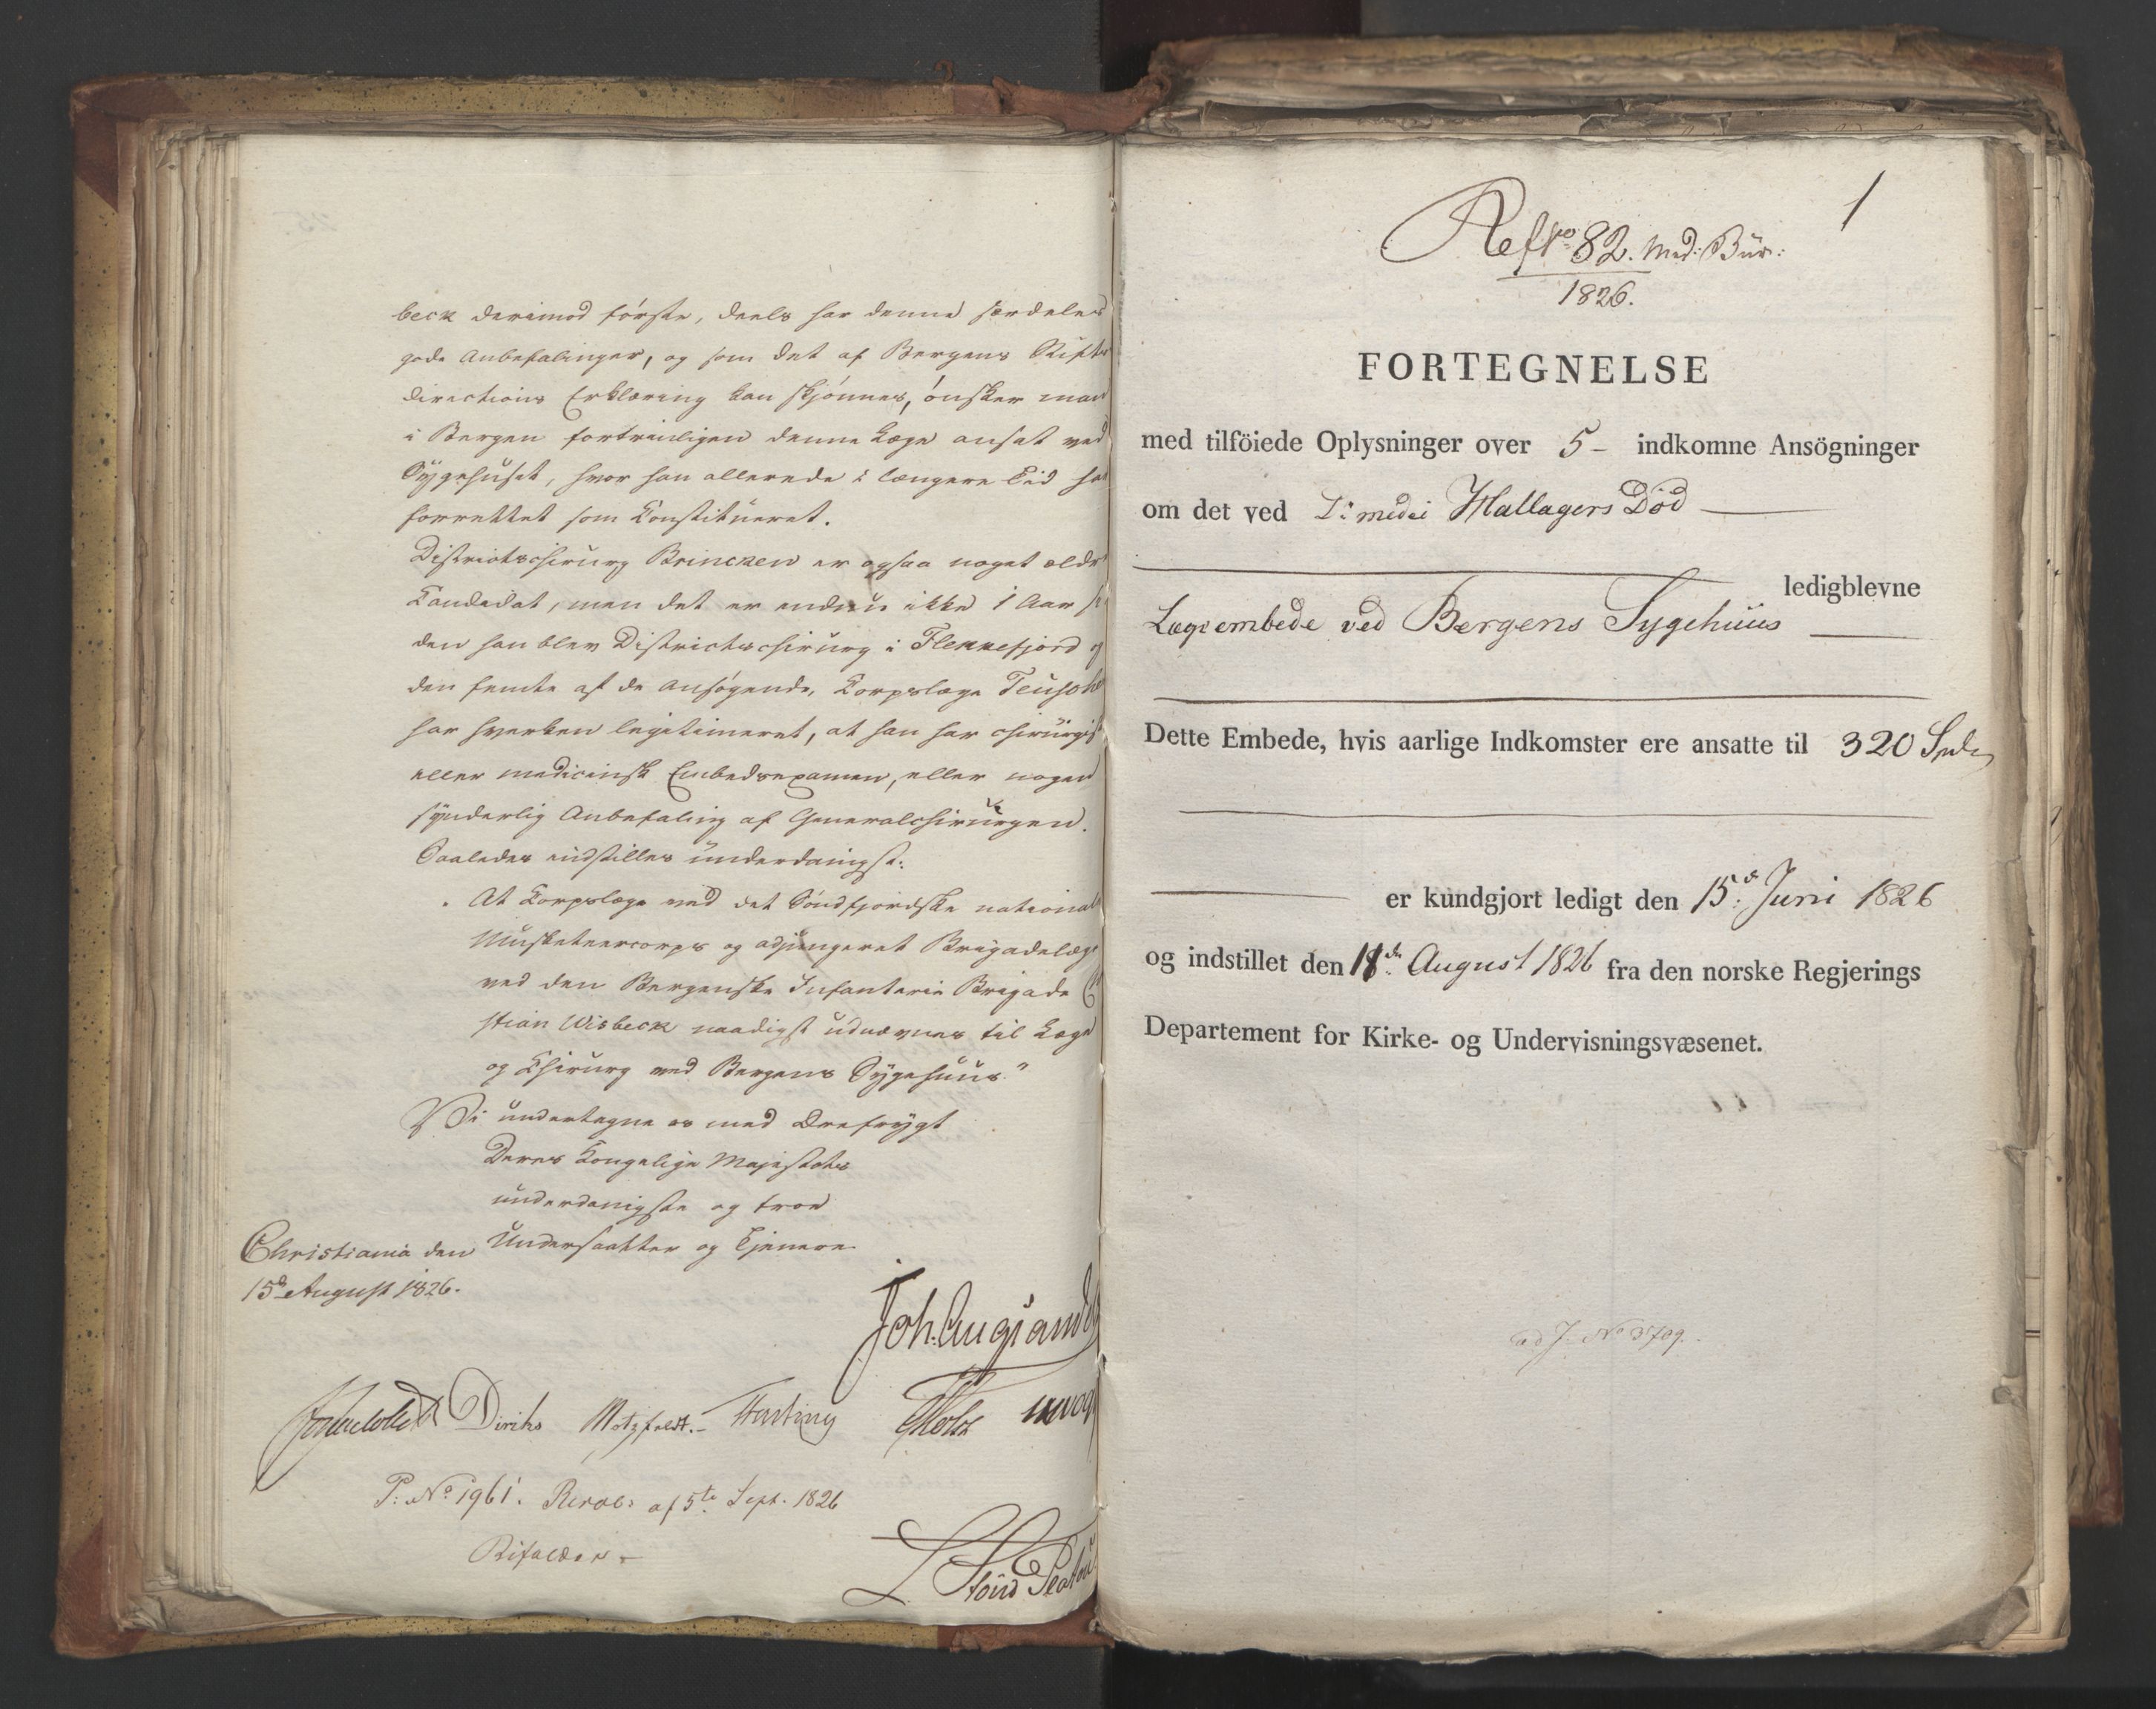 beck derimod første, deels har denne særdeles
gode Anbefalinger, og som det af Bergens Stifts
directions Erklæring kan skjønnes, ønsker man
i Bergen fortrinligen denne Læge ansat ved
Sygehuset, hvor han allerede i længere Tid har
forrettet som Constitueret.
Districtschirurg Brincken er ogsaa noget ældre
Candidat, men det er endnu ikke 1 Aar si
den han blev Districtschirurg i Flekkefjord og
den femte af de Ansøgende, Corpslæge Teusch
har hverken legitimeret, at han har chirurgisk
eller medicinsk Embedsexamen, eller nogen
synderlig Anbefaling af Generalchirurgen.
Saaledes indstilles underdanigst:
At Corpslæge ved det Söndfjordske nationale
Musketeercorps og adjungeret Brigadelæge
ved den Bergenske Infanterie Brigade
stian Wisbeck naadigst udnævnes til Læge
og Chirurg ved Bergens Sygehuus."
Vi undertegne os med Ærefrygt
Deres Kongelige Majestæts
underdanigste og troe
Undersaatter og Tjenere
Christiania den
15de August 1826.
Joh. Aug. Sande
Diriks Motzfeldt. Hasting Holst
P: No 1961. Resol: af 5te Sept. 1826
Bifaldes
1
Ref No 82. Med: Bür:
1826.
FORTEGNELSE
med tilföiede Oplysninger over 5 - indkomne Ansögninger
om det ved Dr. medci Hallagers Död
ledigblevne
Lægeembede ved Bergens Sygehuus
Dette Embede, hvis aarlige Indkomster ere ansatte til 320 Spdr
er kundgjort ledigt den 15de Juni 1826
og indstillet den 18de August 1826 fra den norske Regjerings
Departement for Kirke- og Undervisningsvæsenet.
ad J. No 3709.